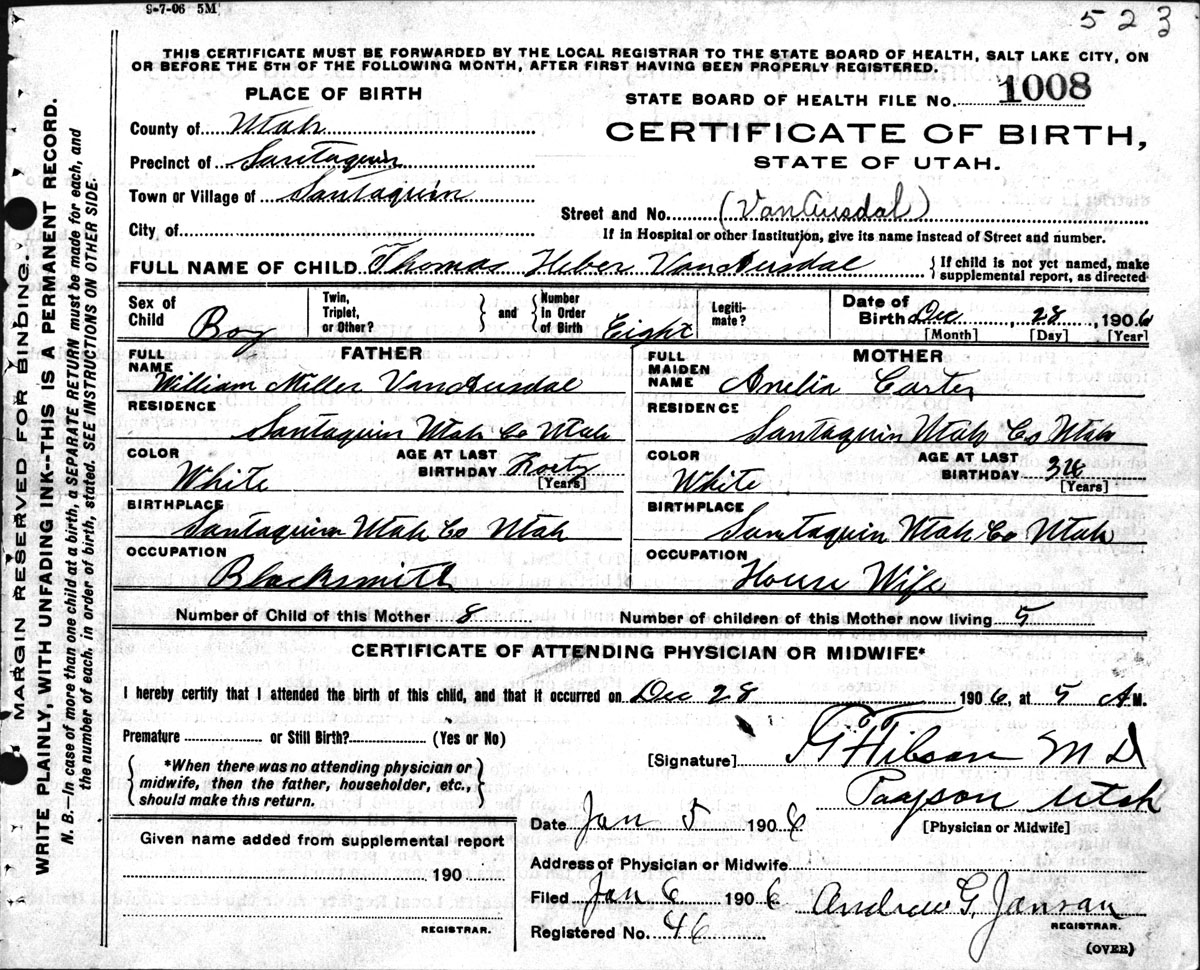 9-7-06 5M
523
THIS CERTIFICATE MUST BE FORWARDED BY THE LOCAL REGISTRAR TO THE STATE BOARD OF HEALTH, SALT LAKE CITY, ON
OR BEFORE THE 5TH OF THE FOLLOWING MONTH, AFTER FIRST HAVING BEEN PROPERLY REGISTERED.
PLACE OF BIRTH
STATE BOARD OF HEALTH FILE No. 1008
County of Utah
CERTIFICATE OF BIRTH,
Precinct of Santaquin
STATE OF UTAH.
Town or Village of Santaquin
Street and No. (VanAusdal)
City of
If in Hospital or other Institution, give its name instead of Street and number.
FULL NAME OF CHILD Thomas Heber VanAusdal { If child is not yet named, make
supplemental report, as directed
Sex of Child Boy
Twin, Triplet, or Other? } and { Number in Order of Birth Eight
Legitimate?
Date of Birth Dec, 28, 1906
[Month] [Day] [Year]
FATHER
FULL NAME William Miller VanAusdal
RESIDENCE
Santaquin Utah Co Utah
COLOR White
AGE AT LAST BIRTHDAY
[Years]
BIRTHPLACE
Santaquin Utah Co Utah
OCCUPATION
Blacksmith
MOTHER
FULL MAIDEN NAME Amelia Carter
RESIDENCE
Santaquin Utah Co Utah
COLOR White
AGE AT LAST BIRTHDAY
[Years]
BIRTHPLACE
Santaquin Utah Co Utah
OCCUPATION
House Wife
Number of Child of this Mother 8
Number of children of this Mother now living 5
CERTIFICATE OF ATTENDING PHYSICIAN OR MIDWIFE*
I hereby certify that I attended the birth of this child, and that it occurred on Dec 28 1906, at 5 A M.
Premature or Still Birth? (Yes or No)
*When there was no attending physician or
midwife, then the father, householder, etc.,
should make this return.
[Signature] M D
Payson Utah
[Physician or Midwife]
Date Jan 5 1906
Address of Physician or Midwife
Filed Jan 6 1906
Andrew G. Jansan
REGISTRAR.
Registered No. 46
(OVER)
Given name added from supplemental report
190
REGISTRAR.
MARGIN RESERVED FOR BINDING.
WRITE PLAINLY, WITH UNFADING INK--THIS IS A PERMANENT RECORD.
N. B.--In case of more than one child at a birth, a SEPARATE RETURN must be made for each, and
the number of each, in order of birth, stated. SEE INSTRUCTIONS ON OTHER SIDE.